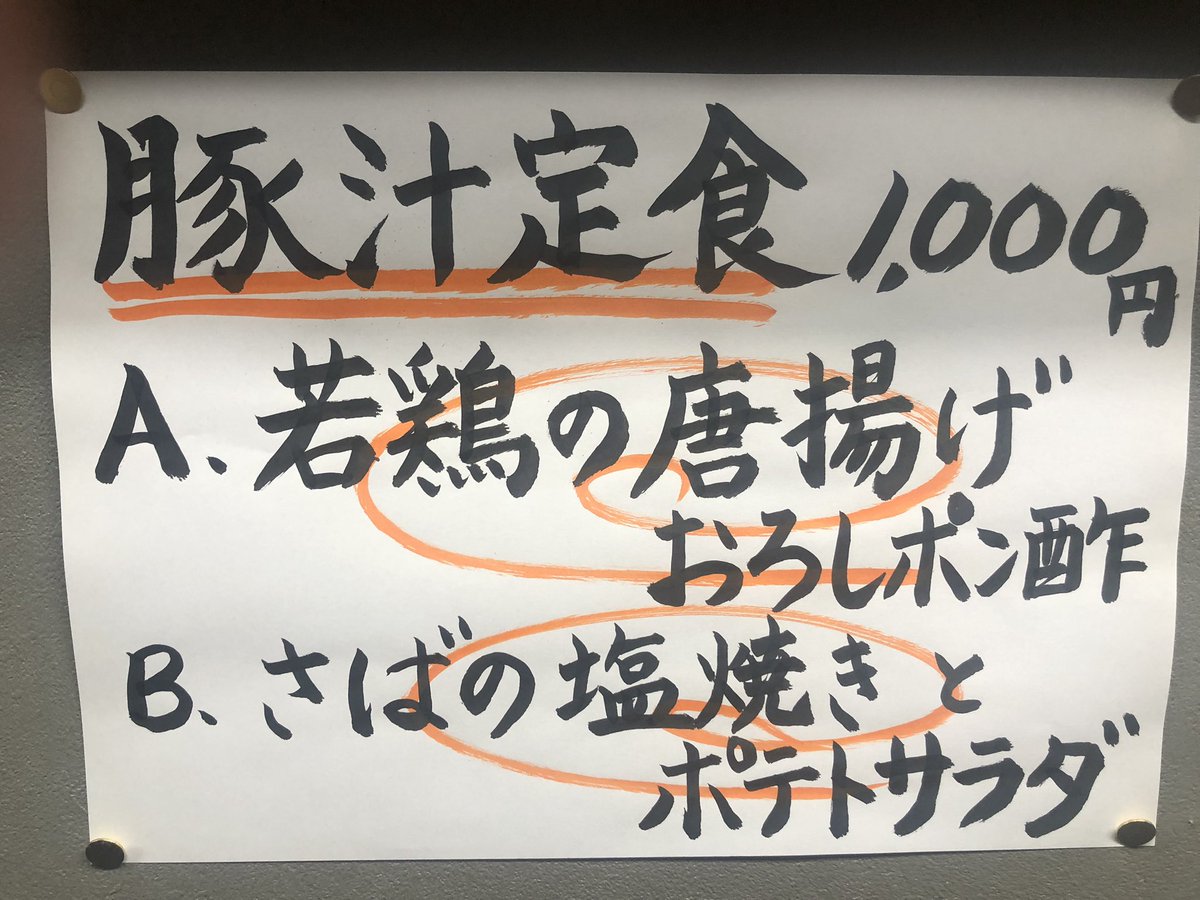 豚汁定食 1,000円
A. 若鶏の唐揚げ
おろしポン酢
B. さばの塩焼きと
ポテトサラダ